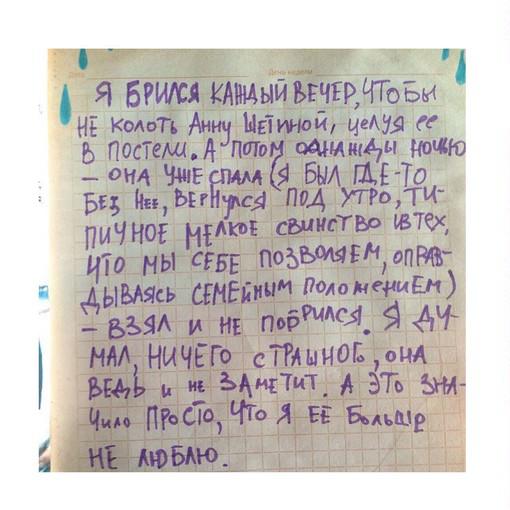 Дата День недели
Я БРИЛСЯ КАЖДЫЙ ВЕЧЕР, ЧТОБЫ
НЕ КОЛОТЬ АННУ ЩЕТИНОЙ, ЦЕЛУЯ ЕЕ
В ПОСТЕЛИ. А ПОТОМ ОДНАЖДЫ НОЧЬЮ
— ОНА УЖЕ СПАЛА (Я БЫЛ ГДЕ-ТО
БЕЗ НЕЕ, ВЕРНУЛСЯ ПОД УТРО, ТИ-
ПИЧНОЕ МЕЛКОЕ СВИНСТВО ИЗ ТЕХ,
ЧТО МЫ СЕБЕ ПОЗВОЛЯЕМ, ОПРАВ-
ДЫВАЯСЬ СЕМЕЙНЫМ ПОЛОЖЕНИЕМ)
— ВЗЯЛ И НЕ ПОБРИЛСЯ. Я ДУ-
МАЛ, НИЧЕГО СТРАШНОГО, ОНА
ВЕДЬ И НЕ ЗАМЕТИТ. А ЭТО ЗНА-
ЧИЛО ПРОСТО, ЧТО Я ЕЁ БОЛЬШЕ
НЕ ЛЮБЛЮ.